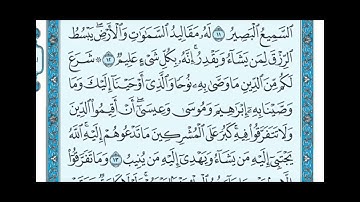 ٱلسَّمِيعُ ٱلْبَصِيرُ ١١ لَهُۥ مَقَالِيدُ ٱلسَّمَٰوَٰتِ وَٱلْأَرْضِ ۖ يَبْسُطُ
ٱلرِّزْقَ لِمَن يَشَآءُ وَيَقْدِرُ ۚ إِنَّهُۥ بِكُلِّ شَىْءٍ عَلِيمٌ ١٢ ۞ شَرَعَ
لَكُم مِّنَ ٱلدِّينِ مَا وَصَّىٰ بِهِۦ نُوحًا وَٱلَّذِىٓ أَوْحَيْنَآ إِلَيْكَ وَمَا
وَصَّيْنَا بِهِۦٓ إِبْرَٰهِيمَ وَمُوسَىٰ وَعِيسَىٰٓ ۖ أَنْ أَقِيمُوا۟ ٱلدِّينَ
وَلَا تَتَفَرَّقُوا۟ فِيهِ ۚ كَبُرَ عَلَى ٱلْمُشْرِكِينَ مَا تَدْعُوهُمْ إِلَيْهِ ۚ ٱللَّهُ
يَجْتَبِىٓ إِلَيْهِ مَن يَشَآءُ وَيَهْدِىٓ إِلَيْهِ مَن يُنِيبُ ١٣ وَمَا تَفَرَّقُوٓا۟